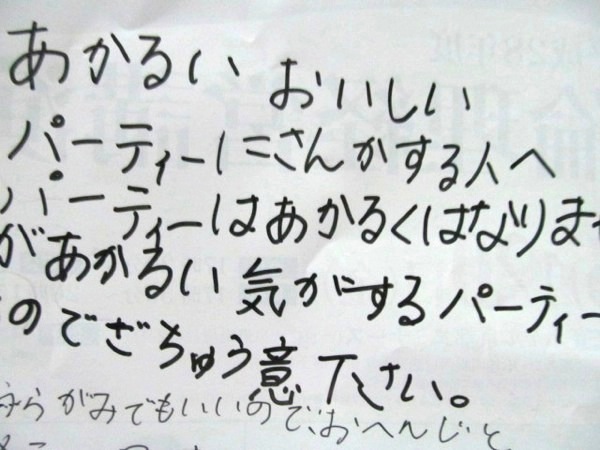 あかるい おいしい
パーティーにさんかする人へ
パーティーはあかるくはなりませ
があかるい気がするパーティー
のでござちゅう意下さい。
うらがみでもいいので、おへんじを